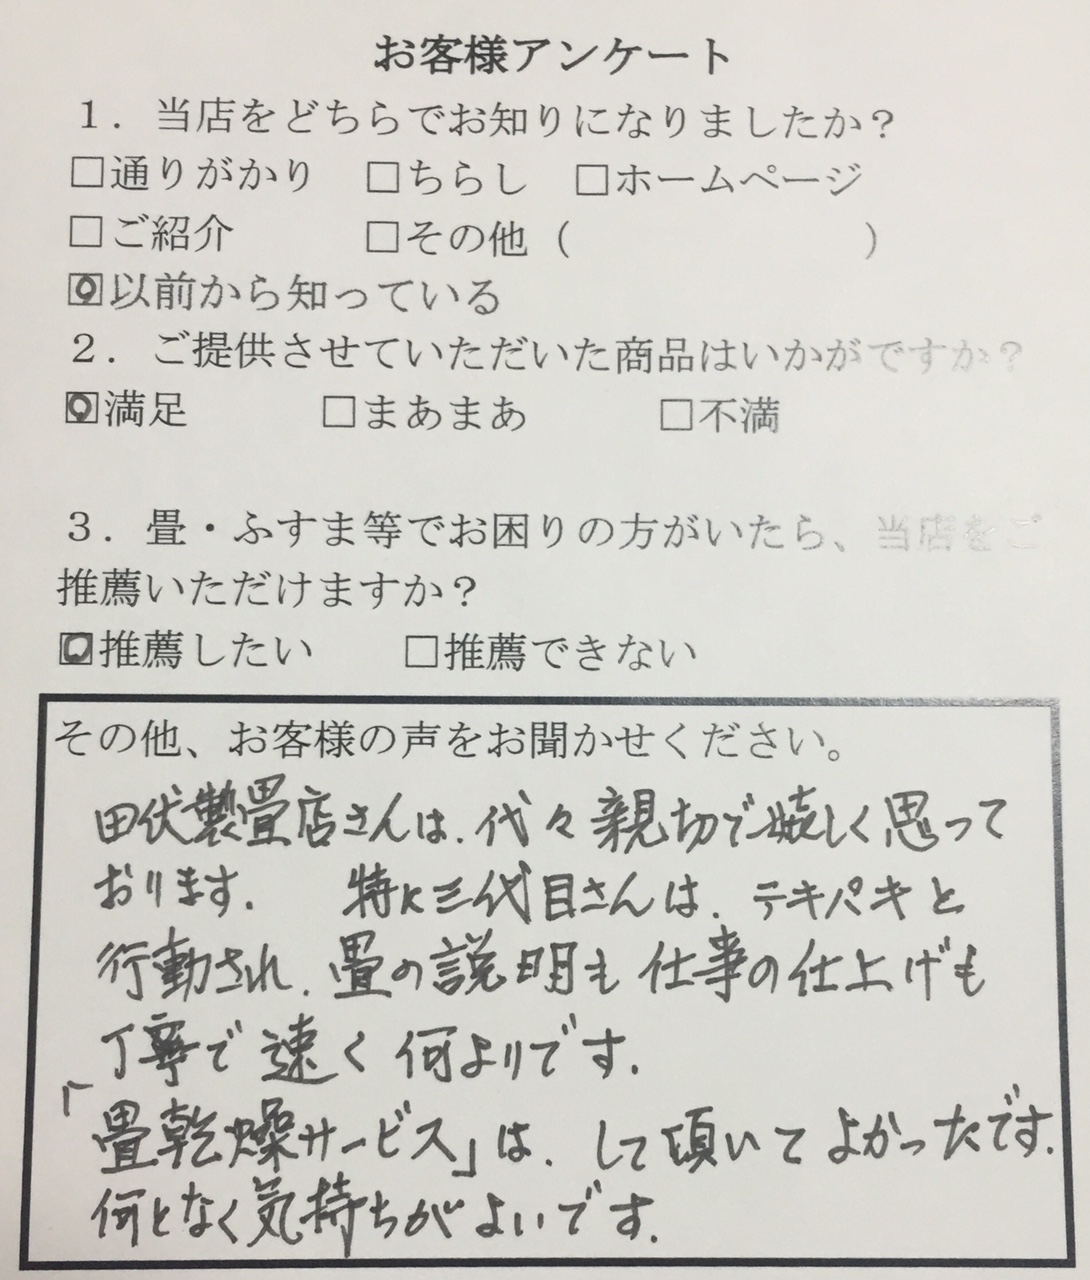 お客様アンケート
１．当店をどちらでお知りになりましたか？
□通りがかり　□ちらし　□ホームページ
□ご紹介　　　□その他（　　　　　　　）
☑以前から知っている
２．ご提供させていただいた商品はいかがですか？
☑満足　　　□まあまあ　　　□不満
３．畳・ふすま等でお困りの方がいたら、当店をご
推薦いただけますか？
☑推薦したい　　□推薦できない
その他、お客様の声をお聞かせください。
田伏製畳店さんは、代々親切で嬉しく思って
おります。　特に三代目さんは、テキパキと
行動され、畳の説明も仕事の仕上げも
丁寧で速く何よりです。
「畳乾燥サービス」は、して頂いてよかったです。
何となく気持ちがよいです。